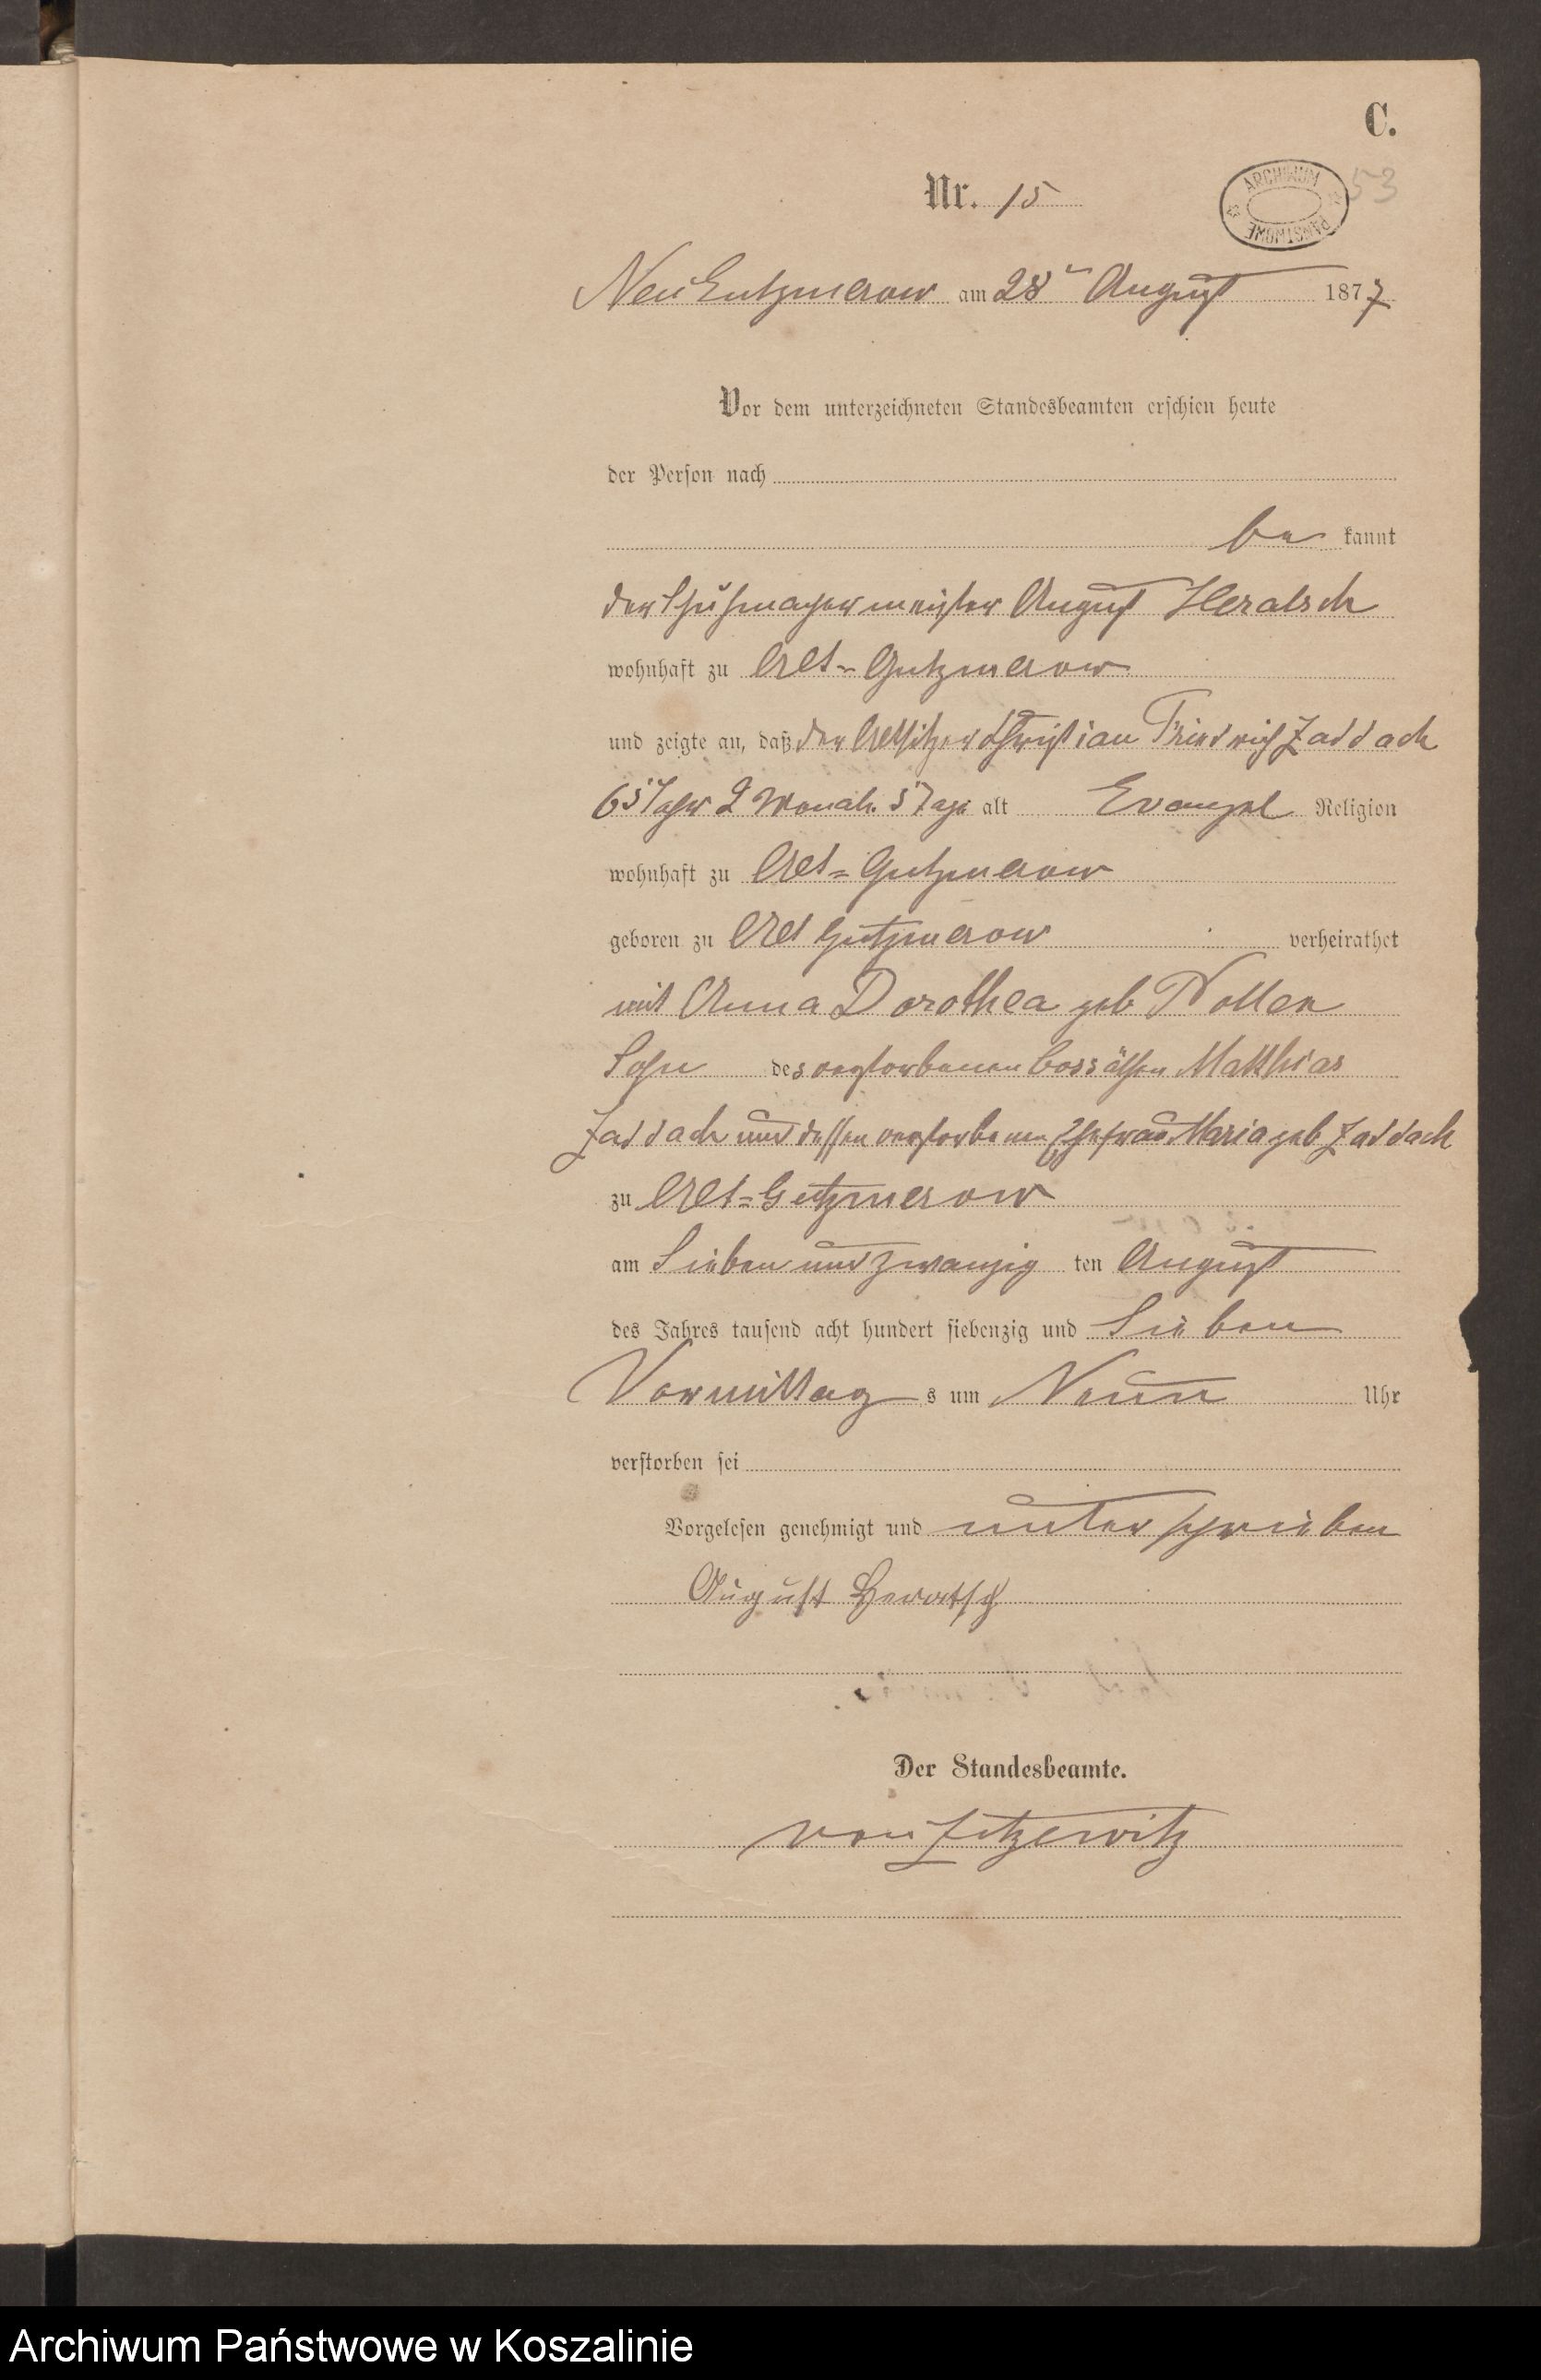 C.
Nr. 15
ARCHIWUM PAŃSTWOWE
53
Neu Gutzmerow am 28ᵗ August 1877
Vor dem unterzeichneten Standesbeamten erschien heute
der Person nach
be kannt
der Schuhmachermeister August Heratsch
wohnhaft zu Alt-Gutzmerow
und zeigte an, daß der Altsitzer Christian Friedrich Zaddach
65 Jahr 2 Monah. 5 Tage alt Evangel Religion
wohnhaft zu Alt=Gutzmerow
geboren zu Alt Gutzmerow verheirathet
mit Anna Dorothea geb Nollen
Sohn des verstorbenen Cossäthen Matthias
Zaddach und dessen verstorbenen Ehefrau Maria geb Zaddach
zu Alt=Gutzmerow
am Sieben und zwanzig ten August
des Jahres tausend acht hundert siebenzig und Sieben
Vormittag s um Neun Uhr
verstorben sei
Vorgelesen genehmigt und unterschrieben
August Heratsch
Der Standesbeamte.
von Zitzewitz
Archiwum Państwowe w Koszalinie